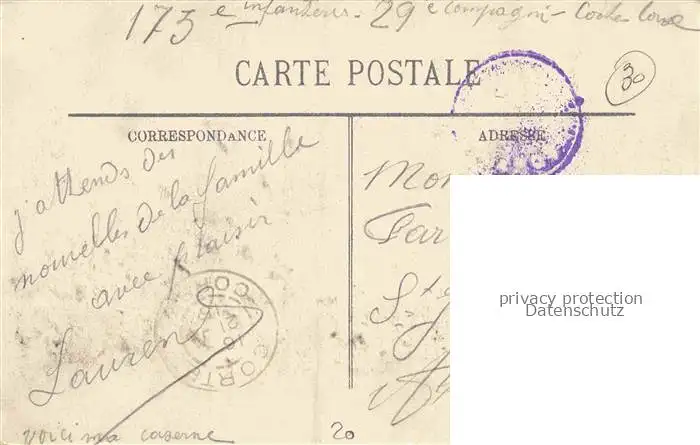 173 e infanterie - 29 e compagni - Corte Corse
CARTE POSTALE
30
CORRESPONDANCE
ADRESSE
j'attends des
nouvelles de la famille
avec plaisir
Laurent
voici ma caserne
20
Mon
Far
St
CORTE
privacy protection
Datenschutz